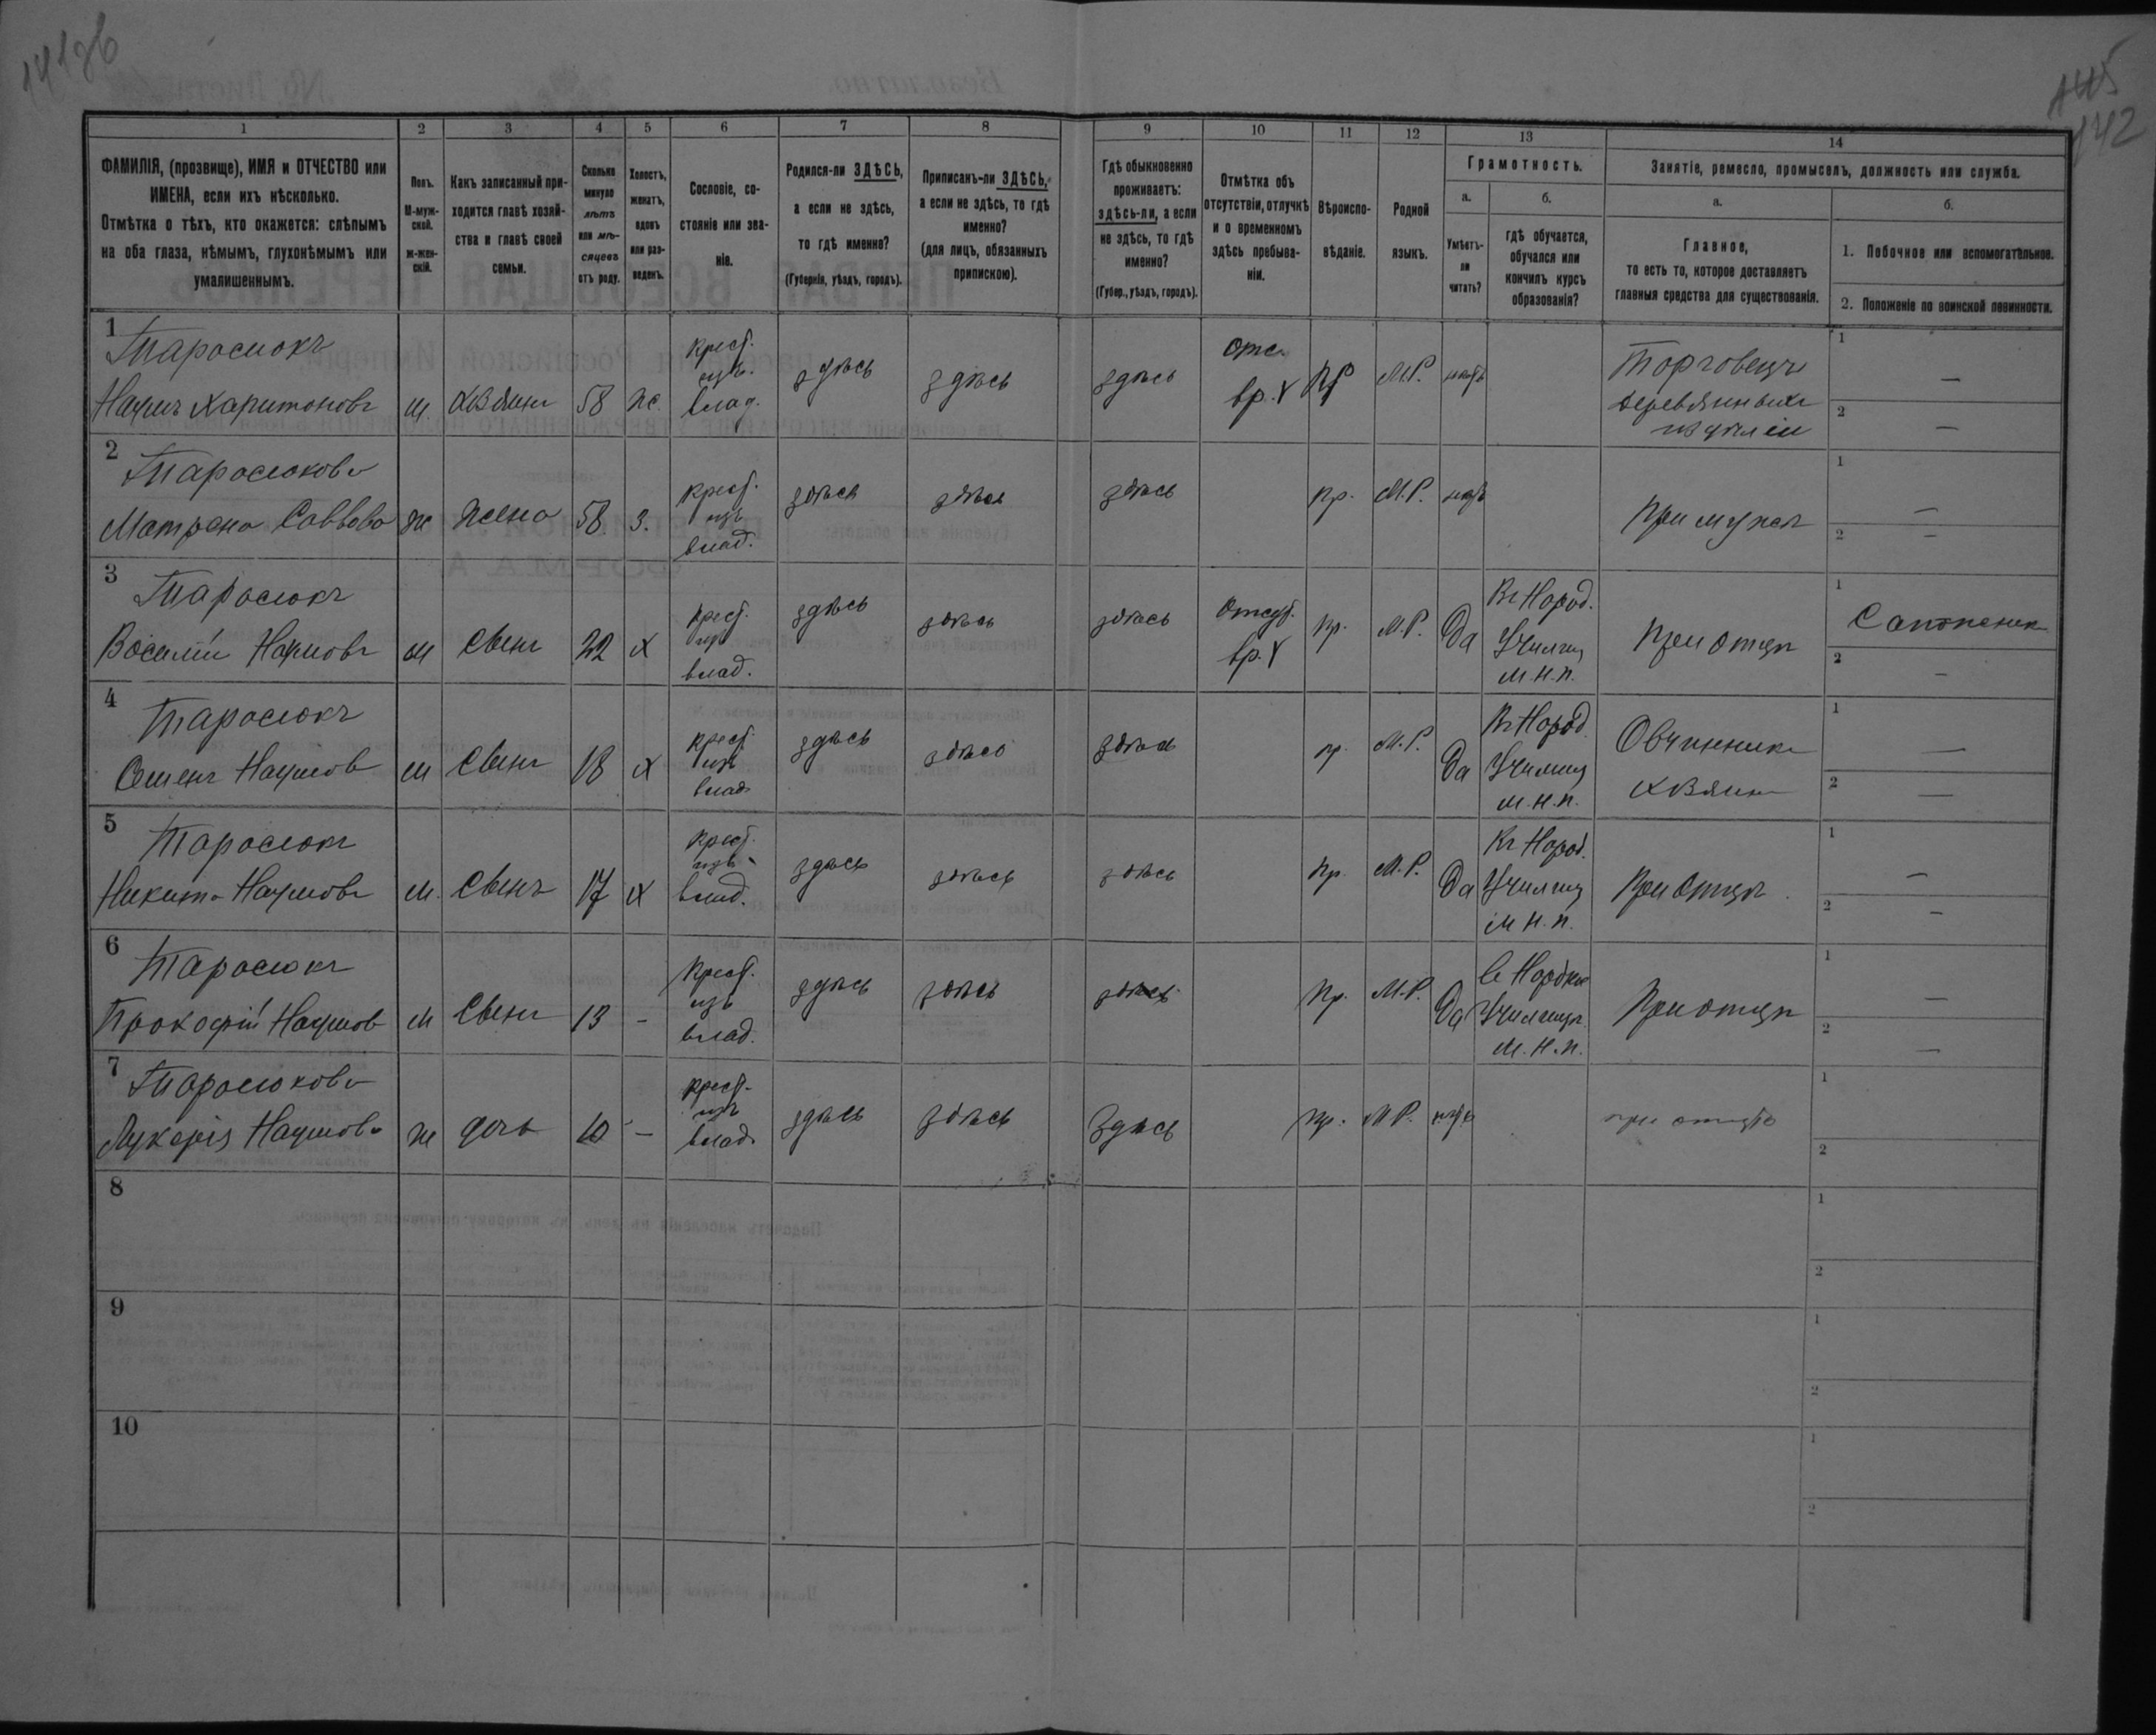 145
142
1 2 3 4 5 6 7 8 9 10 11 12 13 14
ФАМИЛІЯ, (прозвище), ИМЯ и ОТЧЕСТВО или
ИМЕНА, если ихъ нѣсколько.
Отмѣтка о тѣхъ, кто окажется: слѣпымъ
на оба глаза, нѣмымъ, глухонѣмымъ или
умалишеннымъ.
Полъ.
М-муж-
ской.
ж-жен-
скій.
Какъ записанный при-
ходится главѣ хозяй-
ства и главѣ своей
семьи.
Сколько
минуло
лѣтъ
или мѣ-
сяцевъ
отъ роду.
Холостъ,
женатъ,
вдовъ
или раз-
веденъ.
Сословіе, со-
стояніе или зва-
ніе.
Родился-ли ЗДѢСЬ,
а если не здѣсь,
то гдѣ именно?
(Губернія, уѣздъ, городъ).
Приписанъ-ли ЗДѢСЬ,
а если не здѣсь, то гдѣ
именно?
(для лицъ, обязанныхъ
припискою).
Гдѣ обыкновенно
проживаетъ:
здѣсь-ли, а если
не здѣсь, то гдѣ
именно?
(Губер., уѣздъ, городъ).
Отмѣтка объ
отсутствіи, отлучкѣ
и о временномъ
здѣсь пребыва-
ніи.
Вѣроиспо-
вѣданіе.
Родной
языкъ.
Грамотность.
а.
Умѣетъ-
ли
читать?
б.
гдѣ обучается,
обучался или
кончилъ курсъ
образованія?
Занятіе, ремесло, промыселъ, должность или служба.
а.
Главное,
то есть то, которое доставляетъ
главныя средства для существованія.
б.
1. Побочное или вспомогательное.
2. Положеніе по воинской повинности.
1
Тарасюкъ
Наумъ Харитоновъ
м.
хозяинъ
58
ж.
крест.
изъ
влад.
здѣсь
здѣсь
здѣсь
отс.
вр. Y
пр
М.Р.
нѣтъ
Торговецъ
деревянныхъ
издѣлій
1 —
2 —
2
Тарасюкова
Матрена Саввова
ж
жена
58
з.
крест.
изъ
влад.
здѣсь
здѣсь
здѣсь
пр.
М.Р.
нѣтъ
При мужѣ
1 —
2 —
3
Тарасюкъ
Василій Наумовъ
м
Сынъ
22
х
крест.
изъ
влад.
здѣсь
здѣсь
здѣсь
Отсут.
вр. Y
пр.
М.Р.
Да
Въ Народ.
Училищ
М.Н.П.
При отцѣ
1 Сапожник
2 —
4
Тарасюкъ
Семенъ Наумов
м
Сынъ
18
х
крест.
изъ
влад.
здѣсь
здѣсь
здѣсь
пр.
М.Р.
Да
Въ Народ.
Училищ
М.Н.П.
Овчинникъ
хозяинъ
1 —
2 —
5
Тарасюкъ
Никита Наумовъ
м.
Сынъ
17
х
крест.
изъ
влад.
здѣсь
здѣсь
здѣсь
пр.
М.Р.
Да
Въ Народ.
Училищ
М.Н.П.
При Отцѣ
1 —
2 —
6
Тарасюкъ
Прокофій Наумов
м
Сынъ
13
-
крест.
изъ
влад.
здѣсь
здѣсь
здѣсь
пр.
М.Р.
Да
Училищѣ
М.Н.П.
При отцѣ
1 —
2 —
7
Тарасюкова
Лукерія Наумова
ж
дочь
10
-
крест.
изъ
влад.
здѣсь
здѣсь
Здѣсь
пр.
М.Р.
нѣтъ
при отцѣ
1
2
8
1
2
9
1
2
10
1
2